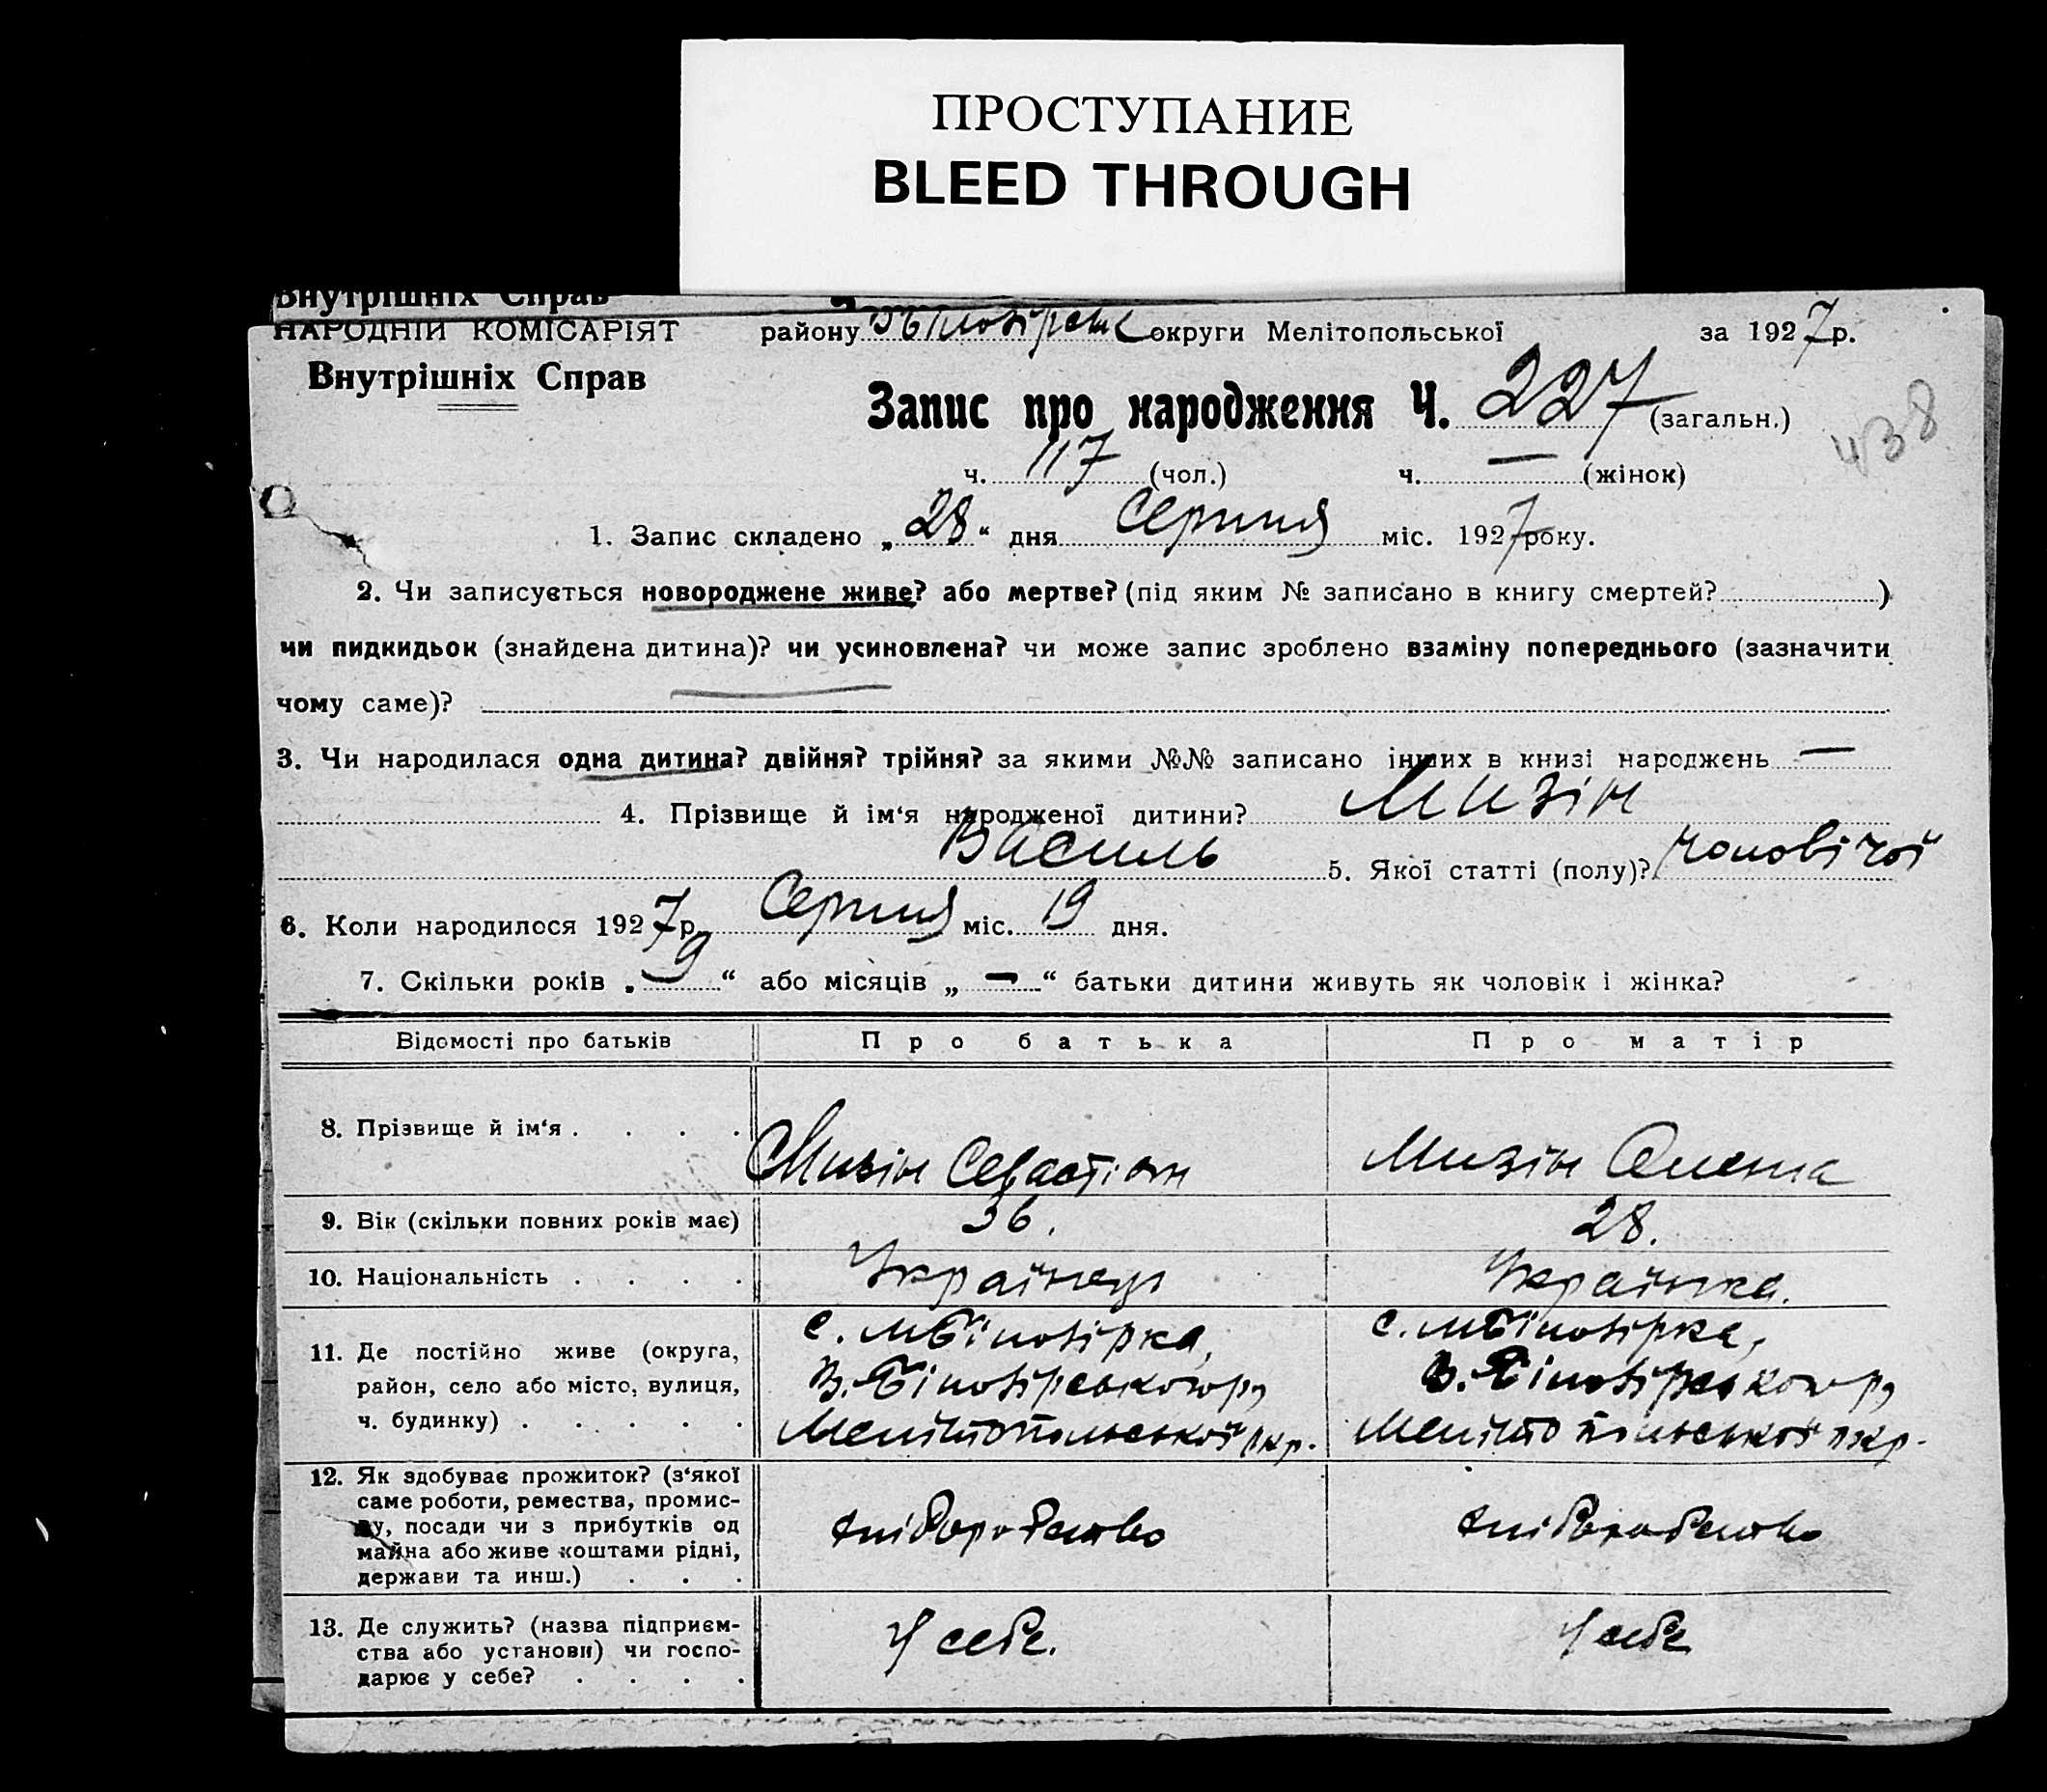 ПРОСТУПАНИЕ
BLEED THROUGH
Внутрішніх Справ
НАРОДНІЙ КОМІСАРІЯТ району округи Мелітопольської за 1927р.
Внутрішніх Справ
Запис про народження Ч. 227 (загальн.)
438
ч. 117 (чол.) ч. — (жінок)
1. Запис складено „28“ дня Серпня міс. 1927 року.
2. Чи записується новороджене живе? або мертве? (під яким № записано в книгу смертей? )
чи пидкидьок (знайдена дитина)? чи усиновлена? чи може запис зроблено взаміну попереднього (зазначити
чому саме)?
3. Чи народилася одна дитина? двійня? трійня? за якими №№ записано інших в книзі народжень —
4. Прізвище й ім‘я народженої дитини? Мизін
Василь 5. Якої статті (полу)? чоловічої
6. Коли народилося 1927 р. Серпня міс. 19 дня.
7. Скільки років „9“ або місяців „—“ батьки дитини живуть як чоловік і жінка?
Відомості про батьків Про батька Про матір
8. Прізвище й ім‘я . . . . Мизін Севастіян Мизін Олена
9. Вік (скільки повних років має) 36. 28.
10. Національність . . . . Українець Українка.
11. Де постійно живе (округа, с. МБілозірка, с. МБілозірка,
район, село або місто, вулиця, В.Білозірського р, В.Білозірського р,
ч. будинку) . . . . . Мелітопольської окр. Мелітопольської окр.
12. Як здобуває прожиток? (з‘якої
саме роботи, ремества, промис-
лу, посади чи з прибутків од хліборобство хліборобство
майна або живе коштами рідні,
держави та инш.) . . .
13. Де служить? (назва підприєм-
ства або установи) чи госпо- У себе. У себе
дарює у себе? . . . .